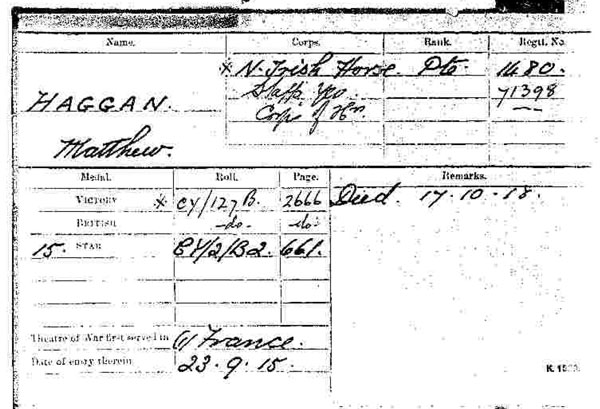 Name. Corps. Rank. Regtl. No.
× N. Irish Horse. Pte. 1480.
HAGGAN. Staffs Yeo 71398
Corps of Hrs. —
Matthew.
Medal. Roll. Page. Remarks.
VICTORY × CY/127B. 2666 Died. 17.10.18.
BRITISH -do- -do-
15. STAR CY/2/B2. 661.
Theatre of War first served in (1) France.
Date of entry therein 23.9.15.